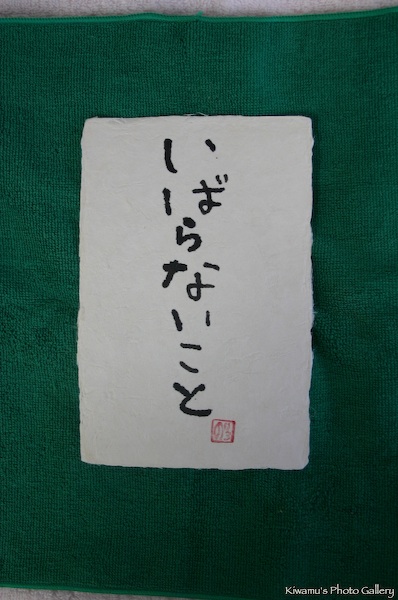 いばらないこと
Kiwamu's Photo Gallery